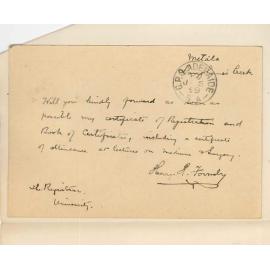 Metala
Creek
G.P.O. ADELAIDE
Will you kindly forward as soon as
possible my certificate of Registration and
Book of Certificates, including a certificate
of attendance at lectures on medicine & Surgery.
Formby
Registrar
University.